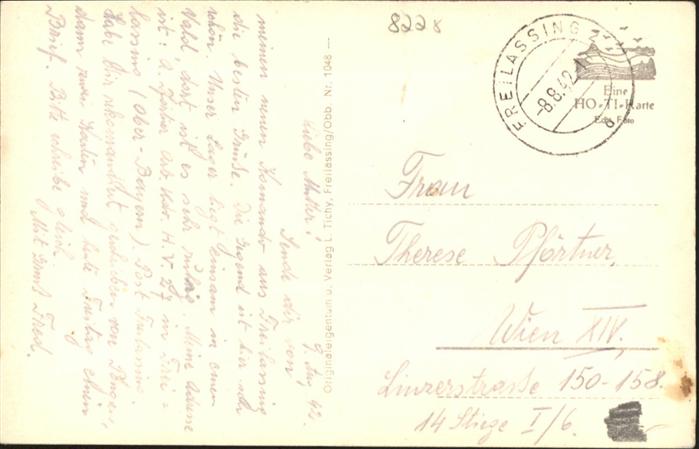 8228
FREILASSING
-8.8.42-
a
Eine
HO-TI-Karte
Echt Foto
Originaleigentum u. Verlag L. Tichy, Freilassing/Obb. Nr. 1048 —
9. Aug. 42.
Liebe Mutter!
Sende dir von
meinem neuen Komando aus Freilassing
die besten Grüße. Die Gegend ist hier sehr
schön. Unser Lager liegt einsam in einem
Wald, dort ist es sehr ruhig. Meine Adresse
ist: A. Pförtner H. V. in Frei-
lassing (Ober-Bayern) Post Freilassing.
Habe dir geschrieben von
dann zwei Karten und heute Freitag einen
Brief. Bitte schreibe gleich.
Mit Fred.
Frau
Therese Pförtner,
Wien XIV.
Linzerstrasse 150-158.
14 Stiege I/6.